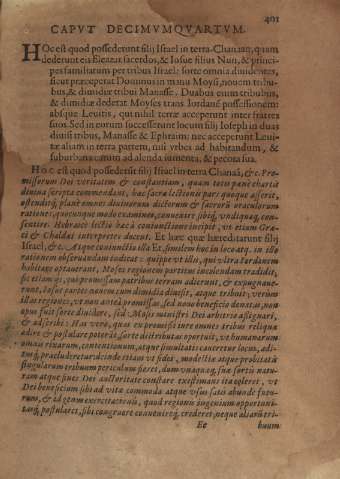 401
CAPVT DECIMVMQVARTVM.
HOc est quod possederunt filij Israel in terra Chanaan, quam
dederunt eis Eleazar sacerdos, & Iosue filius Nun, & princi-
pes familiarum per tribus Israel: sorte omnia diuidentes,
sicut præceperat Dominus in manu Moysi, nouem tribu-
bus, & dimidiæ tribui Manasse. Duabus enim tribubus,
& dimidiæ dederat Moyses trans Iordanē possessionem:
absque Leuitis, qui nihil terræ acceperunt inter fratres
suos. Sed in eorum successerunt locum filij Ioseph in duas
diuisi tribus, Manasse & Ephraim: nec acceperunt Leui-
tæ aliam in terra partem, nisi vrbes ad habitandum, &
suburbana earum ad alenda iumenta, & pecora sua.
Hoc est quod possederūt filij Israel in terra Chanaā, &c. Pro-
missorum Dei veritatem & constantiam, quam totis penè chartis
diuina scripta commendant, hæc sacræ lectionis pars quoque asserit,
ostenditq; planè omnes diuinorum dictorum & sacrorū oraculorum
rationes, quocunque modo examines, conuenire sibiq́; vndiquaq; con-
sentire. Hebraicè lectio hæc à coniunctione incipit, vt etiam Græ-
ci & Chaldæi interpretes docent. Et hæc quæ hæreditarunt filij
Israel, &c. Atque coniunctio illa Et,
rationem obseruandam indicat: quippe vt illis, qui vltra Iordanem
habitare optauerant, Moses regionem partitus incolendam tradidit,
sic etiam
illas regiones, vt non antea promissas, sed nouo beneficio donatas, non
opus fuit sorte diuidere, sed Mosis ministri Dei arbitrio assignari,
& adscribi: Has verò, quas ex promisso iure omnes tribus reliquæ
adire & postulare poterāt, sorte distribui oportuit, vt humanarum
omniū rixarum, contentionum, atque simultatis caueretur locus,
singularum tribuum periculum fieret, dum vnaquæq; suæ sortis natu-
ram atque fines Dei auctoritate constare existimans ita coleret, vt
Dei beneficium sibi ad vitæ commoda atque vsus satis abunde futu-
rum, & ad
tasq́; postularet, sibi congruere conuenireq́; crederet, neque aliarū tri-
Ee buum